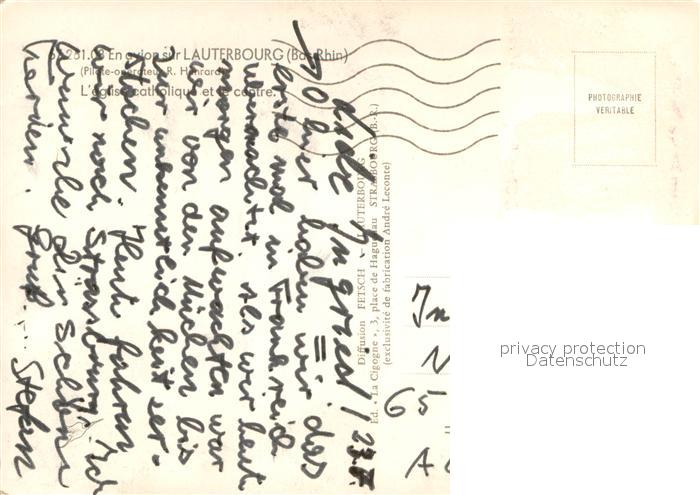 En avion sur LAUTERBOURG (Bas-Rhin)
(Pilote-opérateur R. Henrard)
L'église catholique et le centre.
PHOTOGRAPHIE
VERITABLE
Diffusion FETSCH - LAUTERBOURG
Ed. « La Cigogne », 3, place de Haguenau STRASBOURG (B.-R.)
(exclusivité de fabrication André Leconte)
Ingrid!
hier haben wir das
erste mal in Frankreich
übernachtet. Als wir heut
morgen aufwachten war
wir von den Mücken bis
zur unkenntlichkeit zer-
stochen. Heut fahren
wir noch Strasbourg. Ich
wünsche Dir schöne
Gruß Stefan
In
65
A
privacy protection
Datenschutz